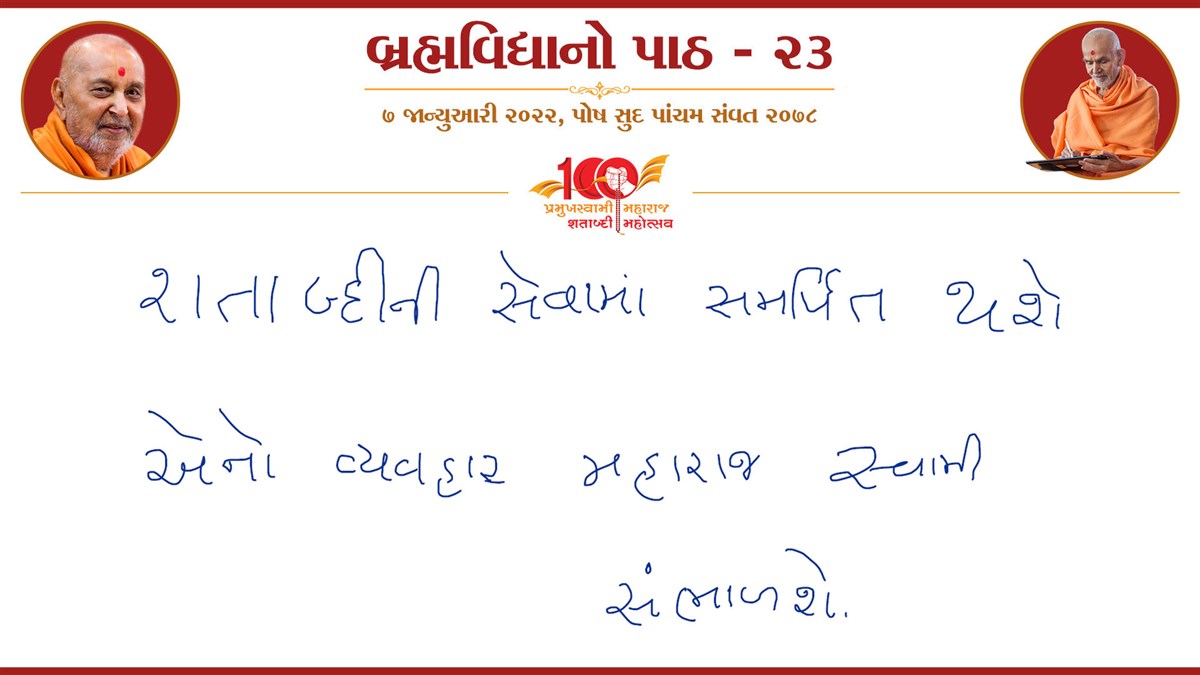 બ્રહ્મવિદ્યાનો પાઠ - ૨૩
૭ જાન્યુઆરી ૨૦૨૨, પોષ સુદ પાંચમ સંવત ૨૦૭૮
100
પ્રમુખસ્વામી મહારાજ
શતાબ્દી મહોત્સવ
શતાબ્દીની સેવામાં સમર્પિત થશે
એનો વ્યવહાર મહારાજ સ્વામી
સંભાળશે.